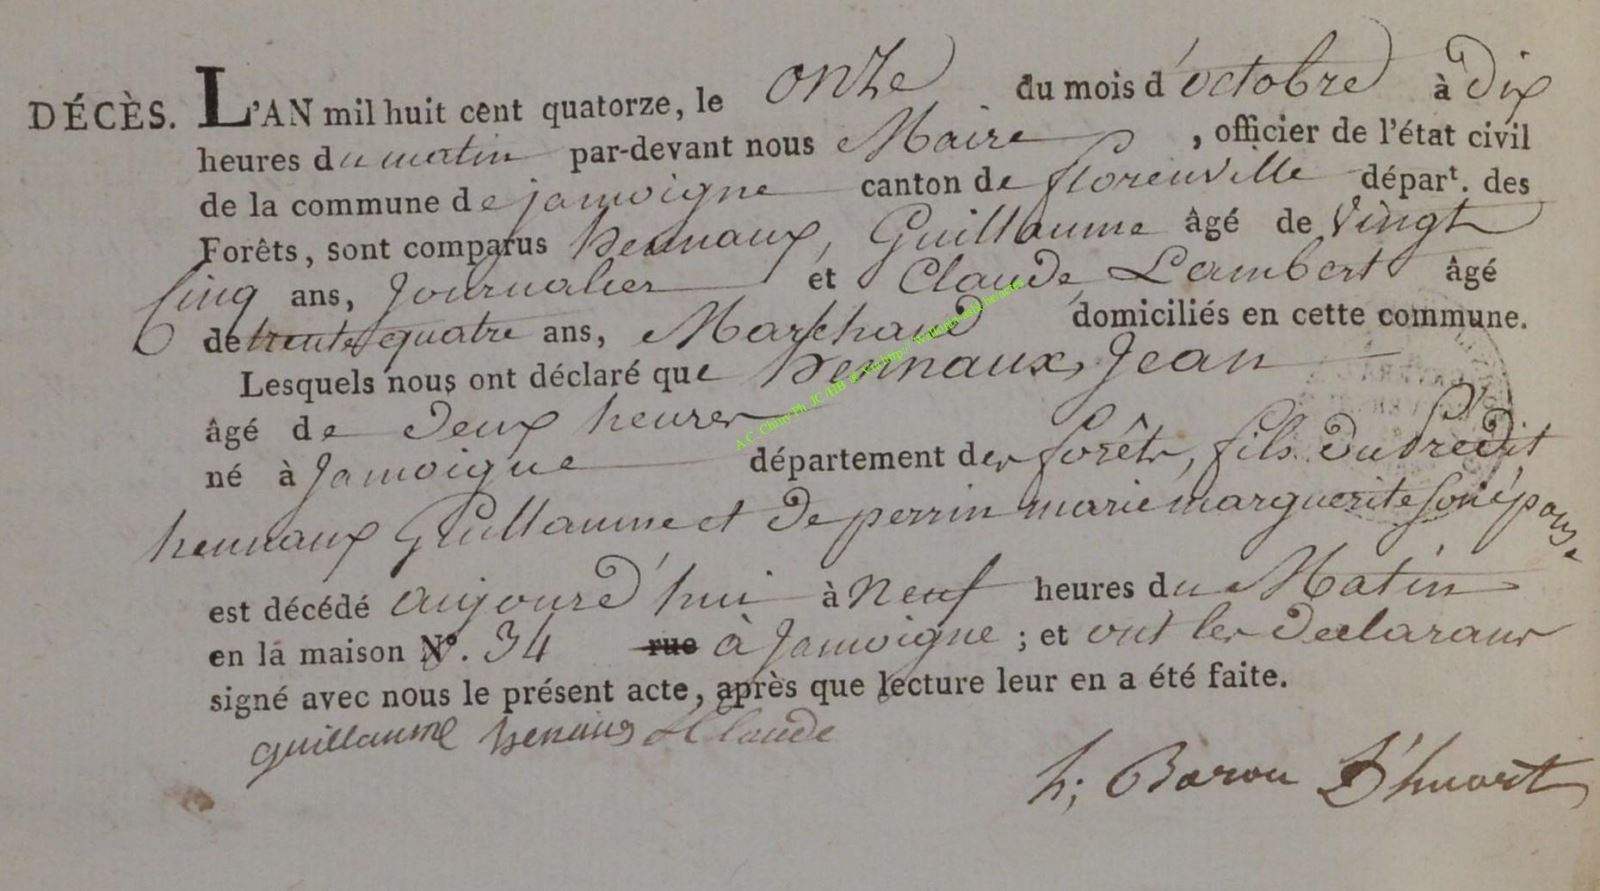 DÉCÈS. L'AN mil huit cent quatorze, le onze du mois d'octobre à dix
heures du matin par-devant nous Maire, officier de l'état civil
de la commune de jamoigne canton de florenville départ. des
Forêts, sont comparus hennaux, Guillaume âgé de Vingt
Cinq ans, Journalier et Claude, Lambert âgé
de trente quatre ans, Marchand domiciliés en cette commune.
Lesquels nous ont déclaré que hennaux, Jean
âgé de deux heures
né à Jamoigne département des forêts, fils du Predit
hennaux Guillaume et de perrin marie marguerite son épouse
est décédé aujourd'hui à Neuf heures du Matin
en la maison N°. 34 rue à Jamoigne ; et ont les declarans
signé avec nous le présent acte, après que lecture leur en a été faite.
guillaume henaux Claude
h; Baron D'huart